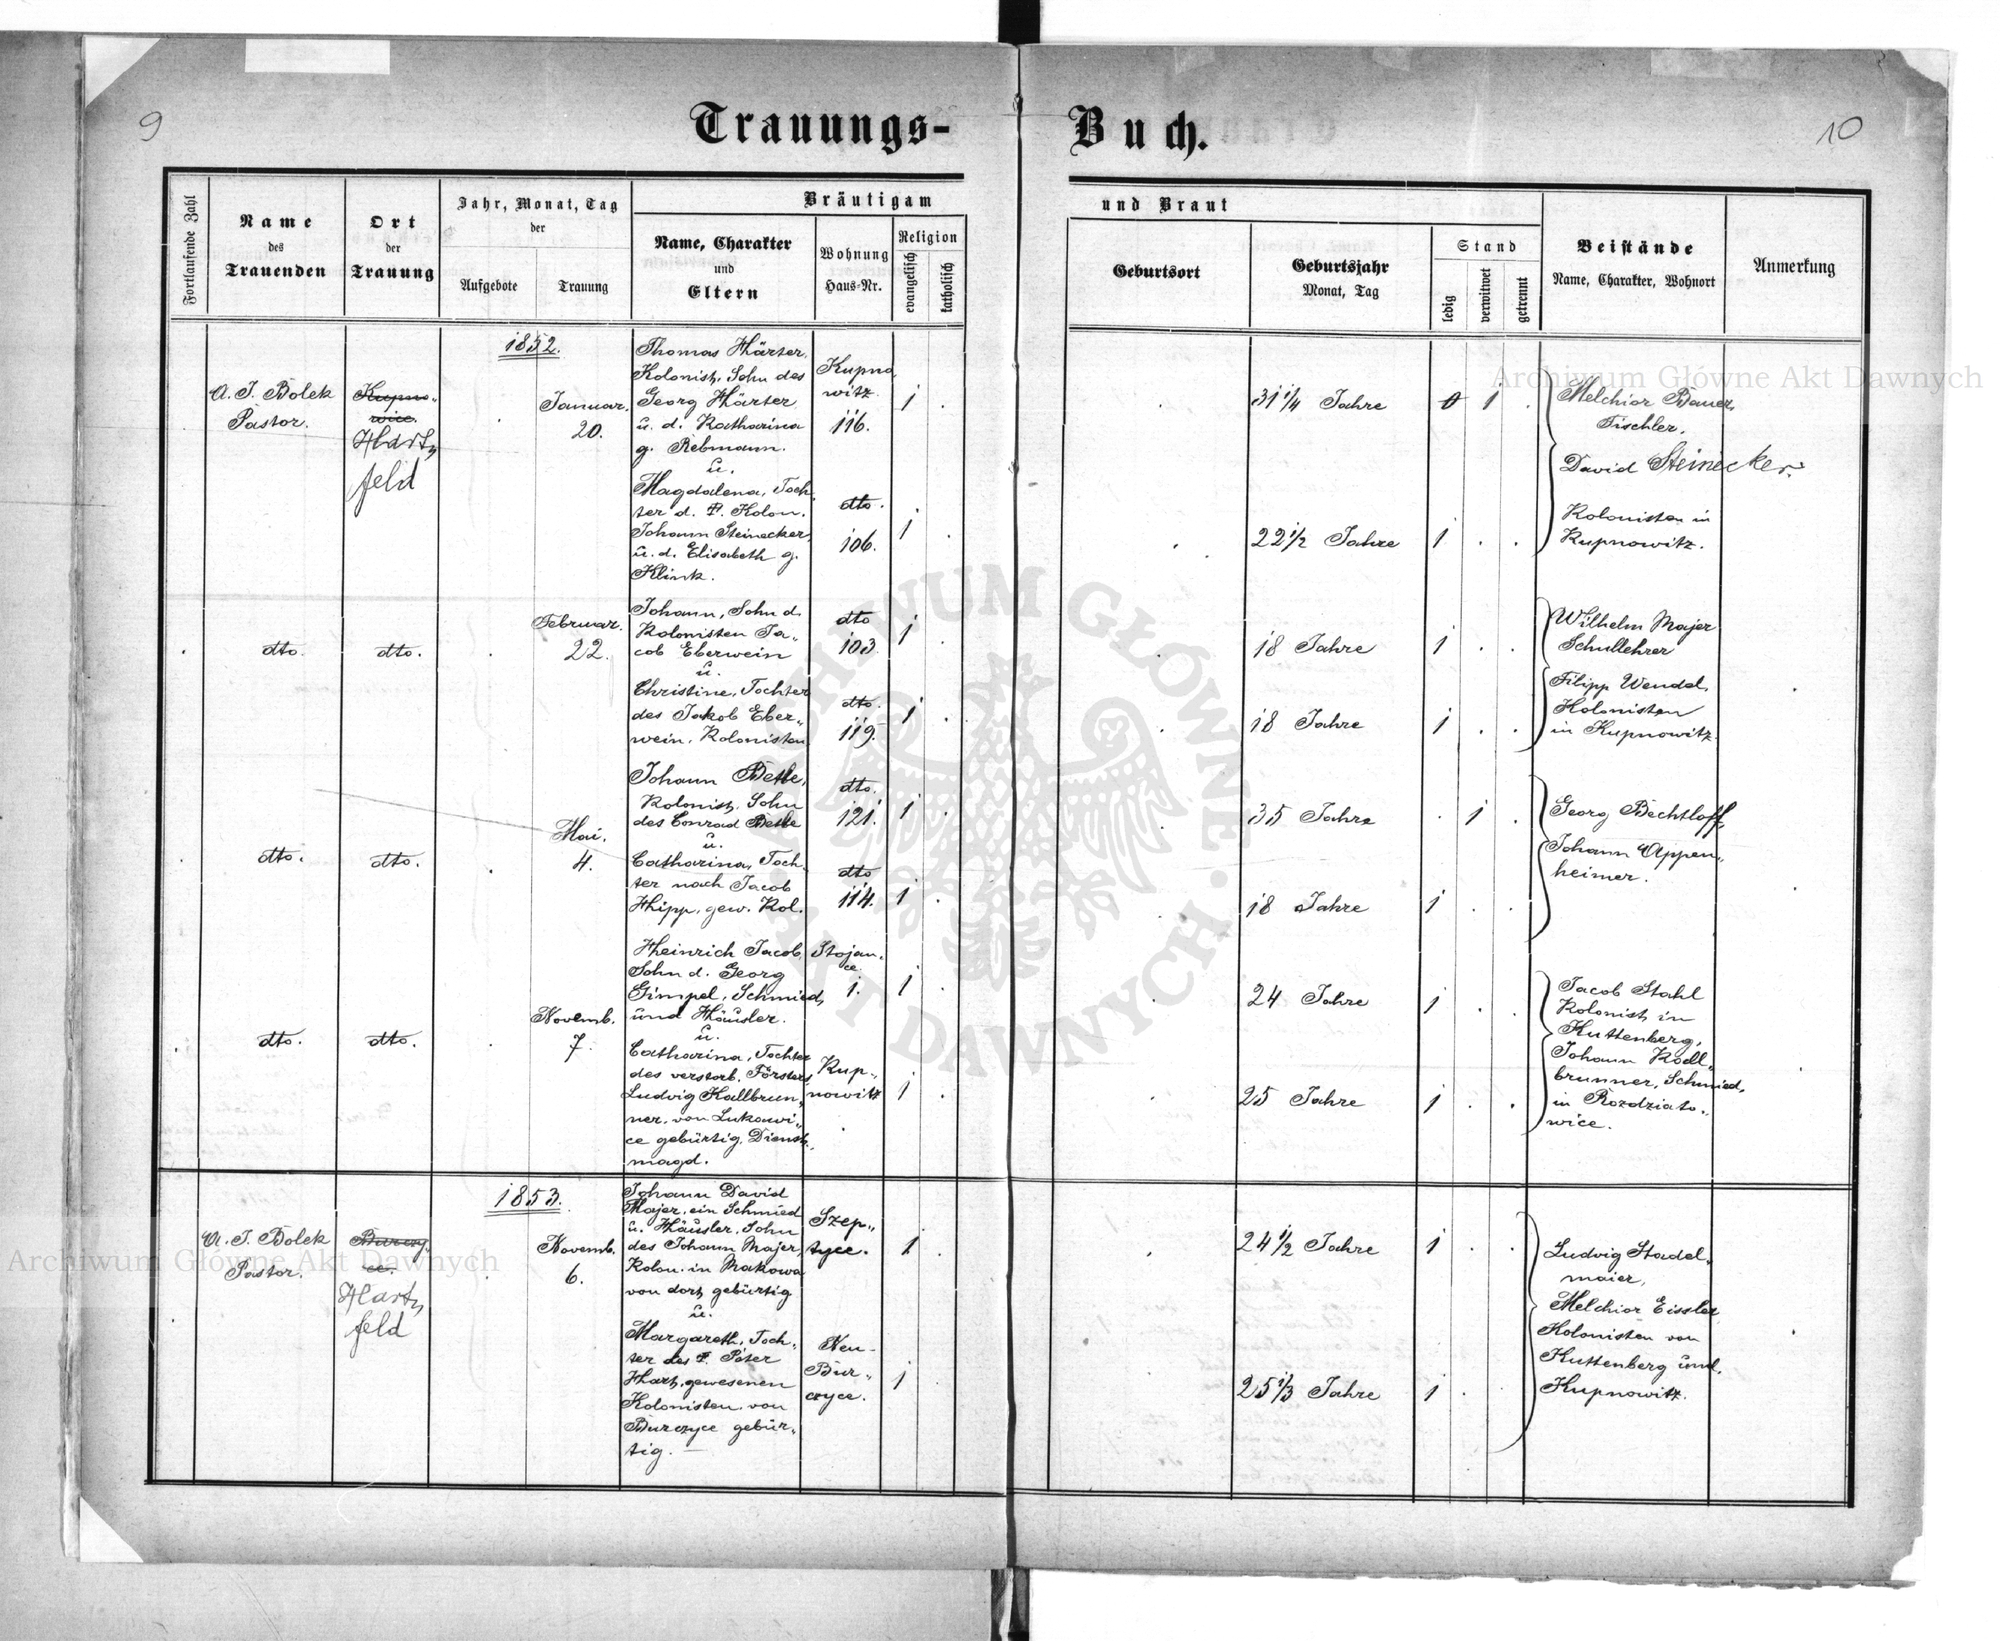 9
10
Trauungs-
Buch.
Fortlaufende Zahl
Name
des
Trauenden
Ort
der
Trauung
Jahr, Monat, Tag
der
Aufgebote
Trauung
Bräutigam
Name, Charakter
und
Eltern
Wohnung
Haus-Nr.
Religion
evangelisch
katholisch
und Braut
Geburtsort
Geburtsjahr
Monat, Tag
Stand
ledig
verwitwet
getrennt
Beistände
Name, Charakter, Wohnort
Anmerkung
1852.
A. J. Bolek
Pastor.
Kupno„
wice.
Hart„
feld
Januar.
20.
Thomas Härter,
Kolonist, Sohn des
Georg Härter
u. d. Katharina
g. Rebmann.
u.
Magdalena, Toch„
ter d. †. Kolon.
Johann Steinecker
u. d. Elisabeth g.
Klink.
Kupno„
witz.
116.
dto.
106.
1
1
31 1/4 Jahre
1
22 1/2 Jahre
1
Melchior Bauer,
Tischler,
David Steinecker.
Kolonisten in
Kupnowitz.
dto.
dto.
Februar.
22.
Johann, Sohn d.
Kolonisten Ja„
cob Eberwein
u.
Christine, Tochter
des Jakob Eber„
wein, Kolonisten
dto
103
dto.
119.
1
1
18 Jahre
1
18 Jahre
1
Wilhelm Majer
Schullehrer
Filipp Wendel,
Kolonisten
in Kupnowitz.
dto.
dto.
Mai.
4.
Johann
Kolonist, Sohn
des Conrad
u.
Catharina, Toch„
ter nach Jacob
Hipp, gew. Kol.
dto.
121.
dto
114.
1
1
35 Jahre
1
18 Jahre
1
Georg Bechtloff,
Johann Appen„
heimer.
dto.
dto.
Novemb.
7.
Heinrich Jacob,
Sohn d. Georg
Gimpel, Schmied,
und Häusler.
u.
Catharina, Tochter
des verstorb. Försters
Ludvig Kallbrun„
ner, von Lukawi„
ce gebürtig, Dienst„
magd.
Stojan„
ce.
1.
Kup„
nowitz
1
1
24 Jahre
1
25 Jahre
1
Jacob Stahl
Kolonist in
Kuttenberg,
Johann
brunner, Schmied,
in Rozdziato„
wice.
1853.
A. J. Bolek
Pastor.
Burczy„
ce.
Hart„
feld
Novemb.
6.
Johann David
Majer, ein Schmied
u. Häusler, Sohn
des Johann Majer,
Kolon. in Makowa
von dort gebürtig
u.
Margareth, Toch„
ter des †. Peter
Hart, gewesenen
Kolonisten, von
Burczyce gebür„
tig. —
Szep„
tyce.
Neu-
Bur„
czyce.
1
1
24 1/2 Jahre
1
25 1/3 Jahre
1
Ludvig Stadel„
maier,
Melchior Eissler
Kolonisten von
Kuttenberg und
Kupnowitz.
Archiwum Główne Akt Dawnych
Archiwum Główne Akt Dawnych
ARCHIWUM GŁÓWNE · AKT DAWNYCH ·